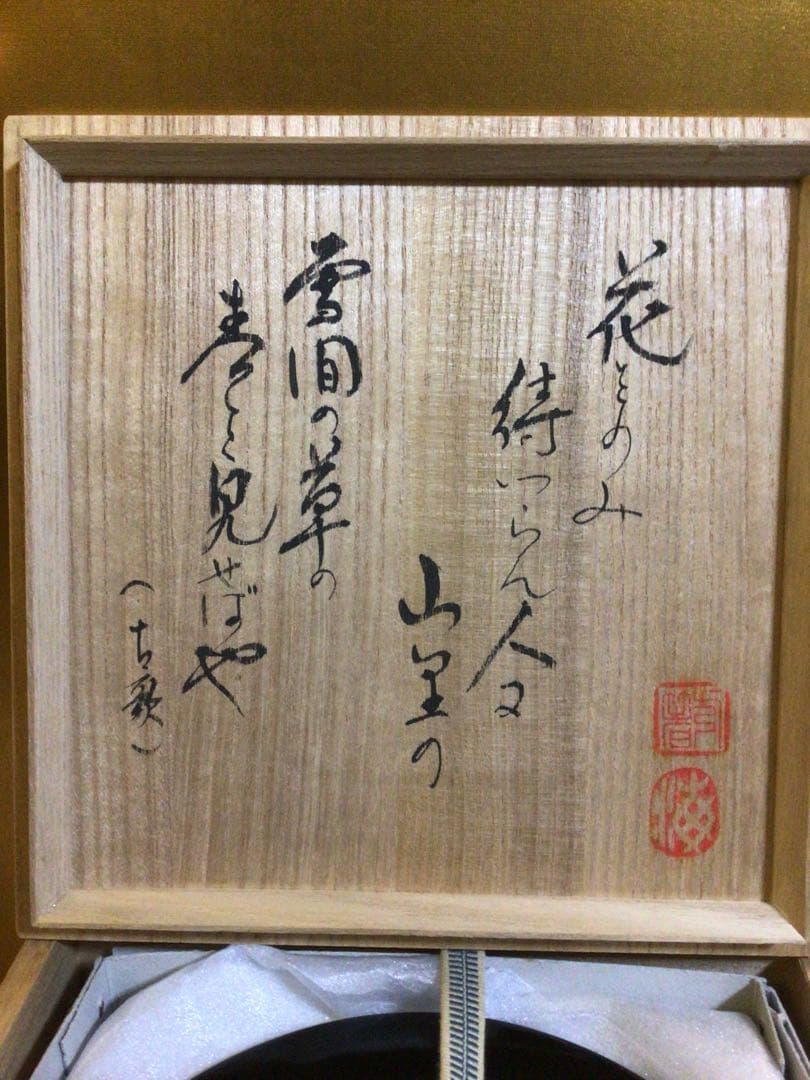 花をのみ
待つらん人に
山里の
雪間の草の
春を見せばや
（古歌）